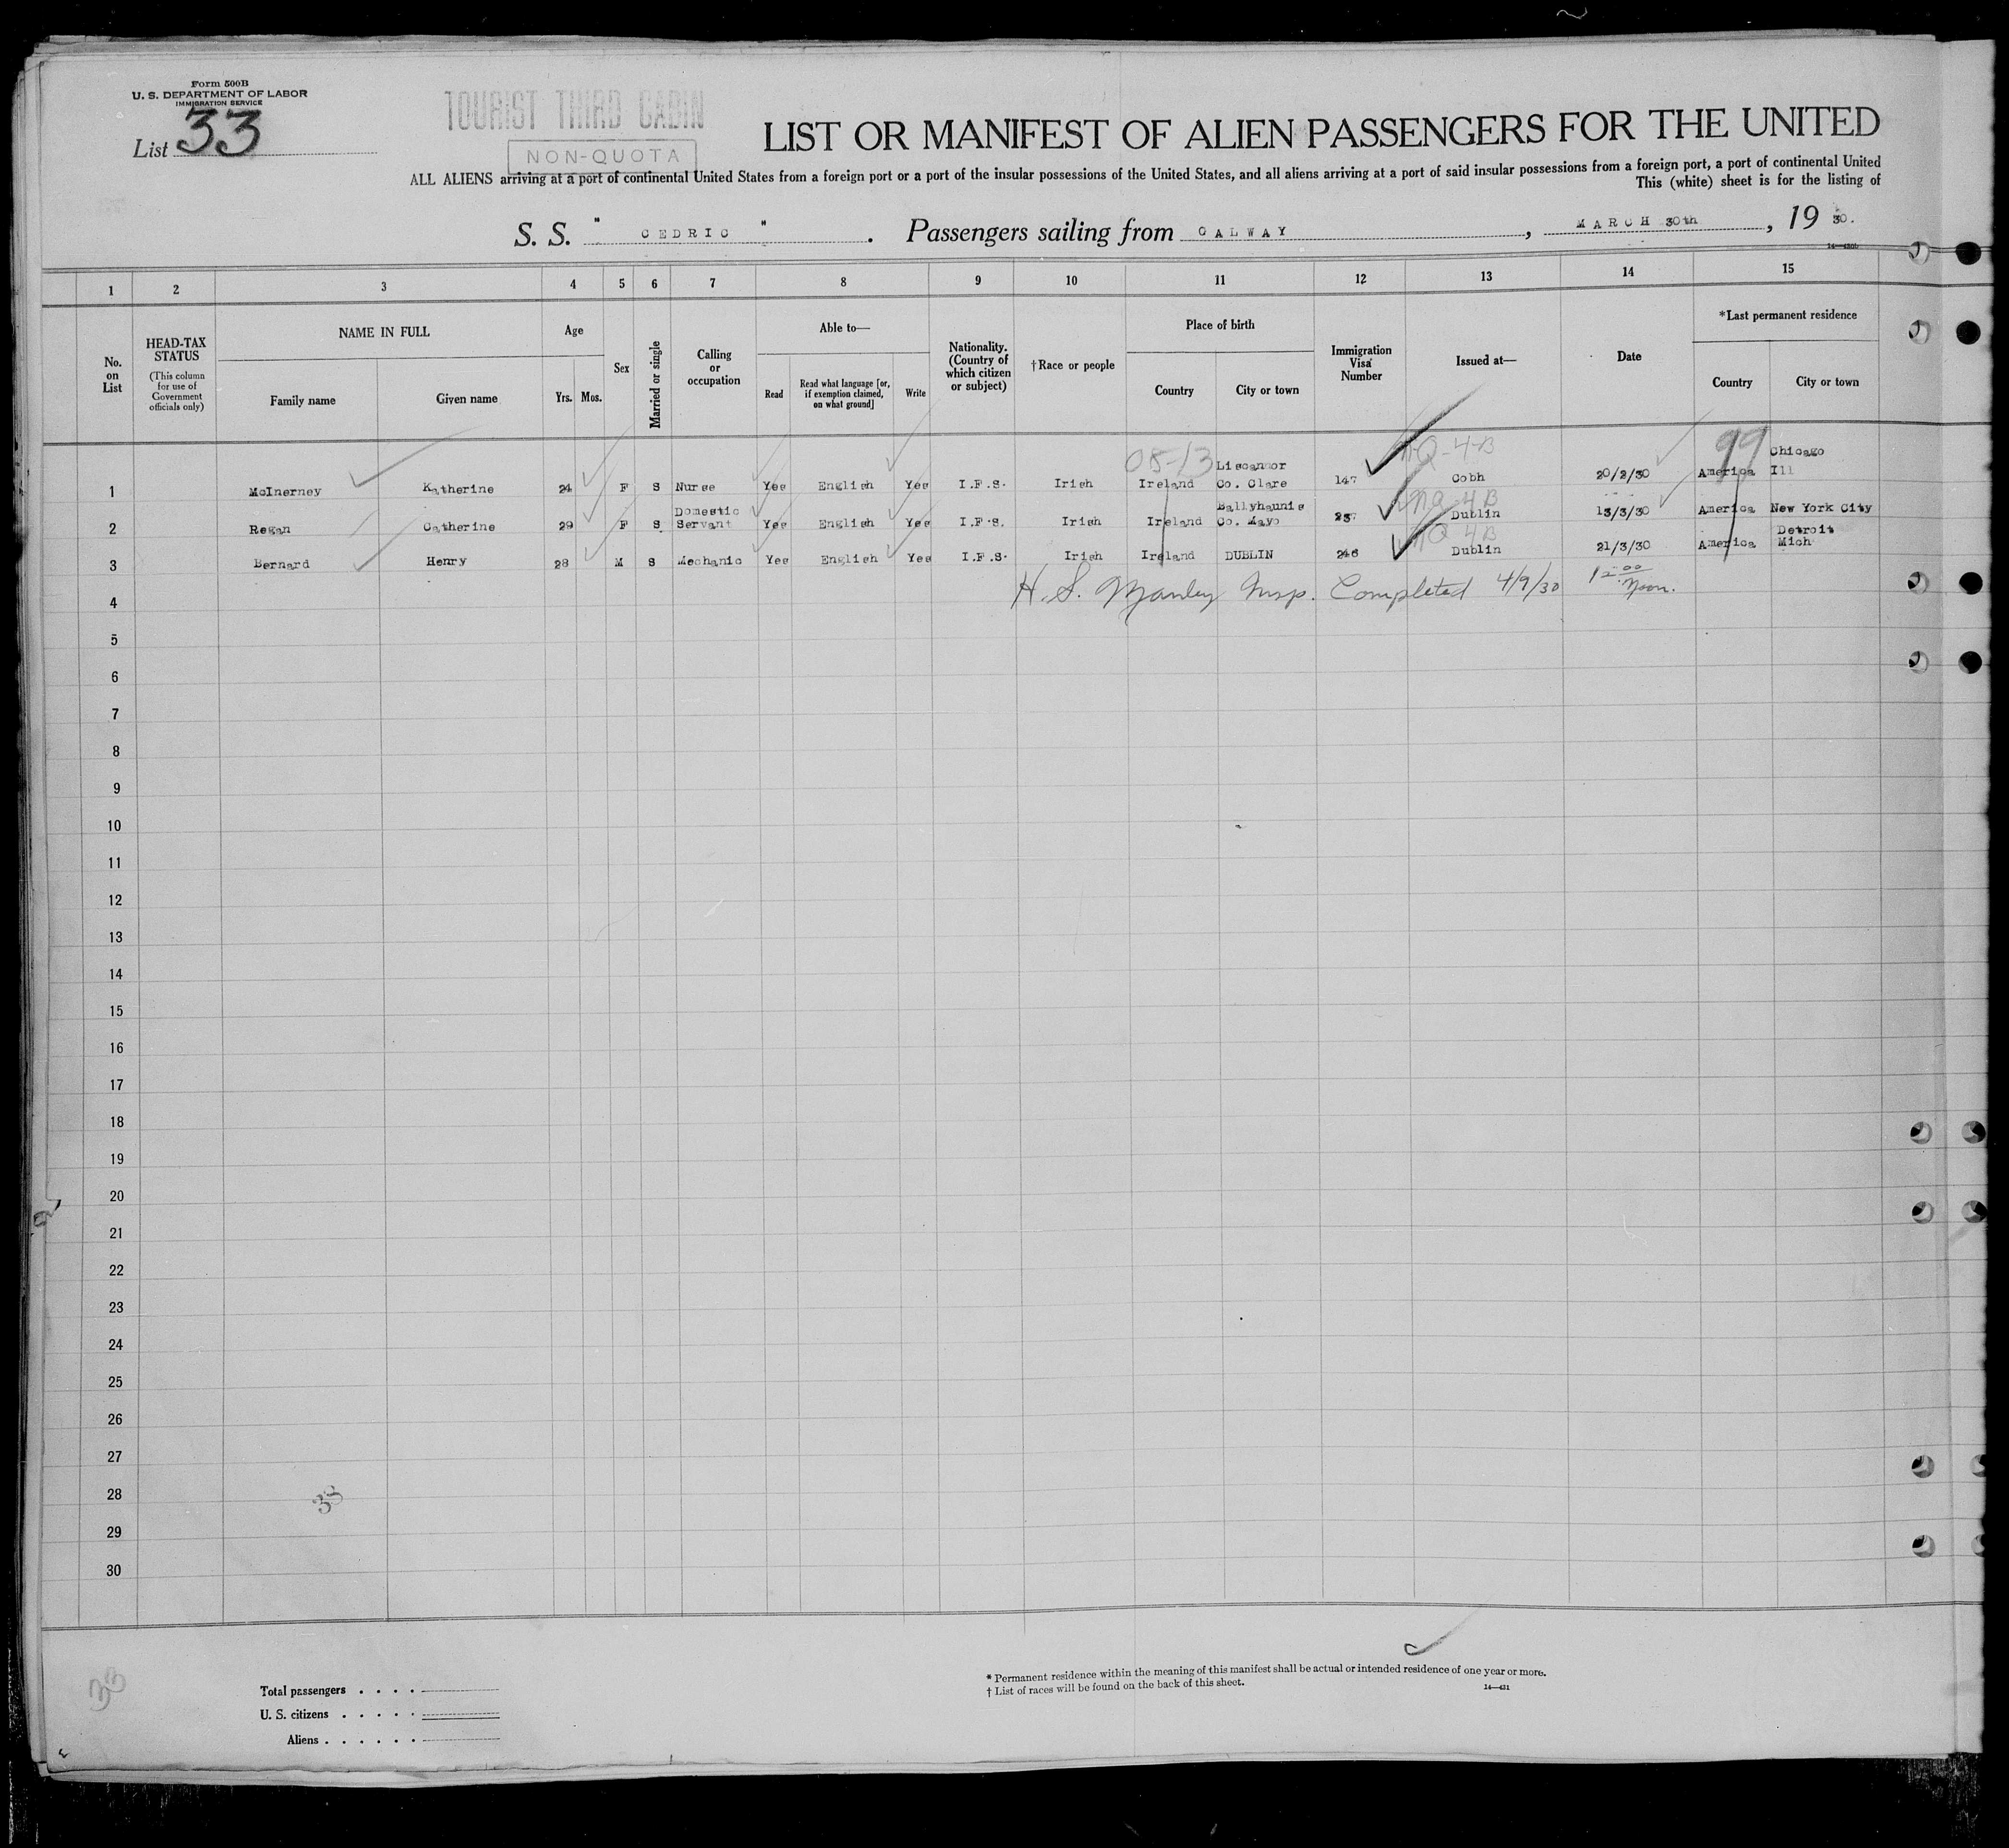 Form 500B
U. S. DEPARTMENT OF LABOR
IMMIGRATION SERVICE
List 33
TOURIST THIRD CABIN
NON-QUOTA
LIST OR MANIFEST OF ALIEN PASSENGERS FOR THE UNITED
ALL ALIENS arriving at a port of continental United States from a foreign port or a port of the insular possessions of the United States, and all aliens arriving at a port of said insular possessions from a foreign port, a port of continental United
This (white) sheet is for the listing of
S. S. " CEDRIC ". Passengers sailing from GALWAY, MARCH 30th, 19 30.
1 2 3 4 5 6 7 8 9 10 11 12 13 14 15
No. on List
HEAD-TAX STATUS
(This column for use of Government officials only)
NAME IN FULL
Family name Given name
Age
Yrs. Mos.
Sex
Married or single
Calling or occupation
Able to—
Read
Read what language [or, if exemption claimed, on what ground]
Write
Nationality. (Country of which citizen or subject)
†Race or people
Place of birth
Country City or town
Immigration Visa Number
Issued at—
Date
*Last permanent residence
Country City or town
05-13 NQ-4-B 99
1 McInerney Katherine 24 F S Nurse Yes English Yes I.F.S. Irish Ireland Liscannor Co. Clare 147 Cobh 20/2/30 America Chicago Ill
NQ 4 B
2 Regan Catherine 29 F S Domestic Servant Yes English Yes I.F.S. Irish Ireland Ballyhaunis Co. Mayo Dublin 13/3/30 America New York City
NQ 4 B
3 Bernard Henry 28 M S Mechanic Yes English Yes I.F.S. Irish Ireland DUBLIN 246 Dublin 21/3/30 America Detroit Mich
4 H. S. Manley Insp. Completed 4/9/30 12:00 Noon.
5
6
7
8
9
10
11
12
13
14
15
16
17
18
19
20
21
22
23
24
25
26
27
28
29
30
33
Total passengers . . . .
U. S. citizens . . . . .
Aliens . . . . . .
* Permanent residence within the meaning of this manifest shall be actual or intended residence of one year or more.
† List of races will be found on the back of this sheet.
14—431